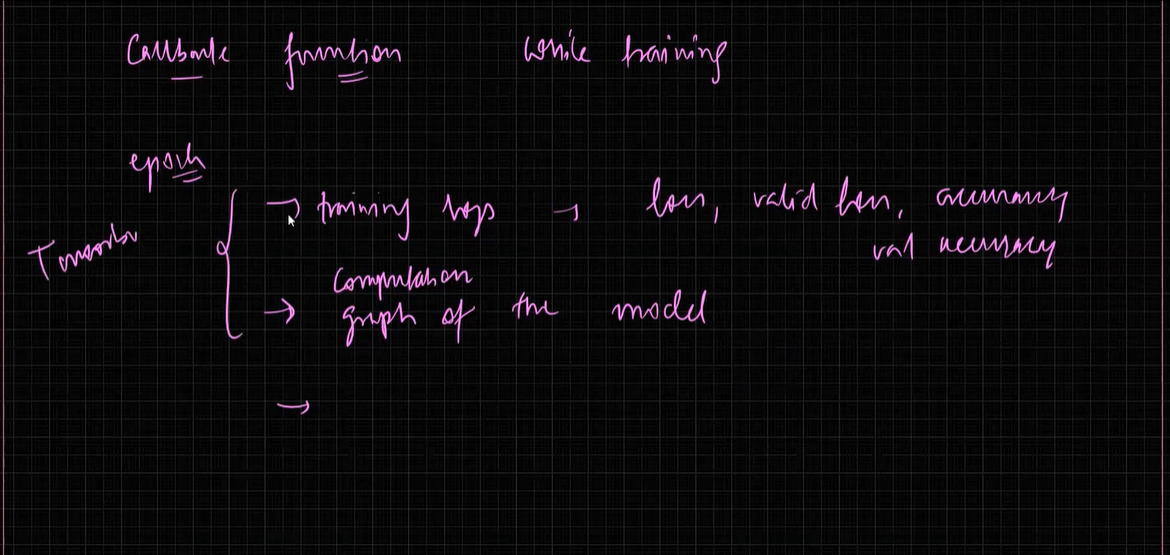 Callback function while training
epoch
→ training logs → loss, valid loss, accuracy
val accuracy
Computation
→ graph of the model
→